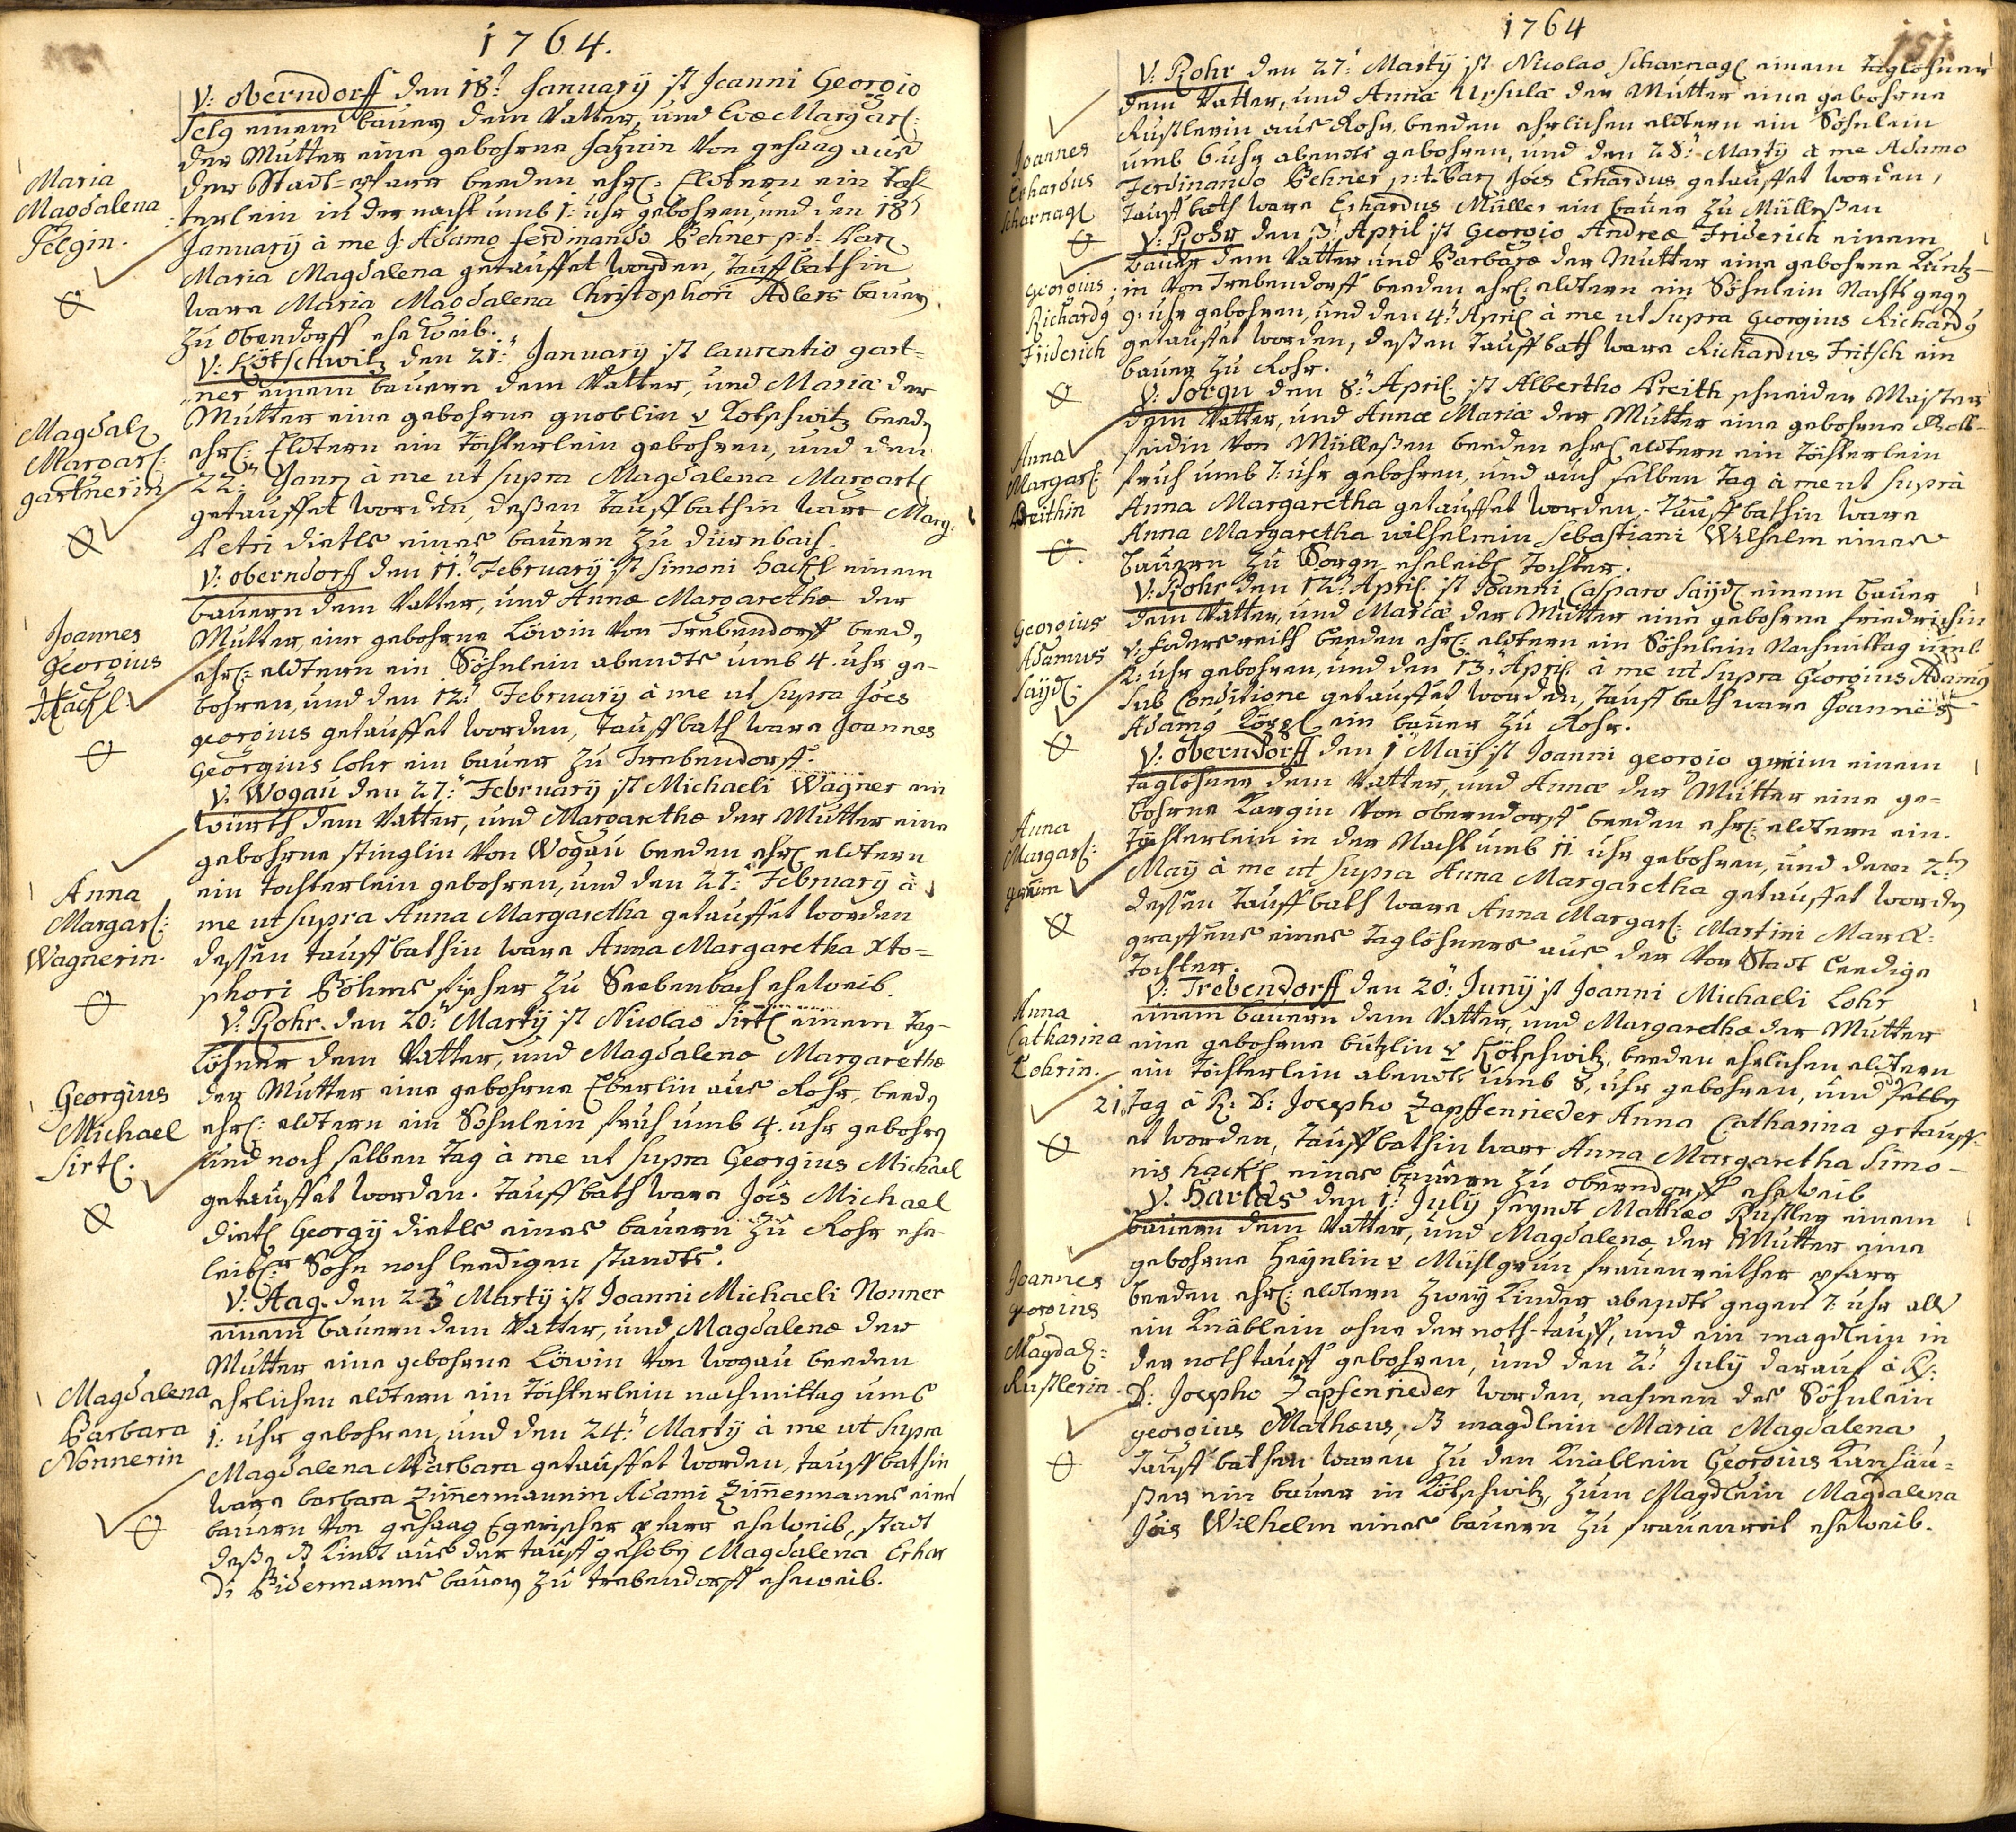 1764.
V: Oberndorff den 18: January ist Joanni Georgio
Felg einem bauern dem Vatter, und Evæ Margar:
der Mutter eine gebohrne von gehaag aus
der Stadt-pfarr beeden ehrl: Eldtern ein Töch-
terlein in der nacht umb 1: uhr gebohren, und den 18
January à me J: Adamo Ferdinando Behner p:t: Par:
Maria Magdalena getauffet worden, Tauffbathin
ware Maria Magdalena Christophori Adlers bauern
zu Oberndorff eheweib.
Maria
Magdalena
Felgin.
V: Kötschwitz den 21: January ist Laurentio gart-
ner einem bauern dem Vatter, und Mariæ der
Mutter eine gebohrne gnoblin v Kötschwitz beeden
ehrl: Eldtern ein Töchterlein gebohren, und den
22: Janu: à me ut supra Magdalena Margart:
getauffet worden, deßen Tauffbathin ware Marg:
Petri dietls eines bauern zu dürnbach.
Magdal:
Margar:
gartnerin
V: Oberndorff den 11: February ist Simoni Hackl einem
bauern dem Vatter, und Annæ Margarethæ der
Mutter, eine gebohrne Löwin von Trebendorff beeden
ehrl: eldtern ein Söhnlein abendts umb 4. uhr ge-
bohren, und den 12: February à me ut supra Joes
georgius getauffet worden, Tauffbath ware Joannes
Georgius Lohr ein bauer zu Trebendorff.
Joannes
Georgius
Hackl.
V: Wogau den 27: February ist Michaeli Wagner ein
würth dem Vatter, und Margarethæ der Mutter eine
gebohrne stinglin von Wogau beeden ehrl eldtern
ein Töchterlein gebohren, und den 27: February à
me ut supra Anna Margaretha getauffet worden
dessen tauffbathin ware Anna Margaretha Xto-
phori Böhms fischer zu Seebenbach eheweib.
Anna
Margar:
Wagnerin.
V: Rohr. den 20: Marty ist Nicolao Sirtl einem Tag-
löhner dem Vatter, und Magdalenæ Margarethæ
der Mutter eine gebohrne Eberlin aus Rohr, beeden
ehrl: eldtern ein Söhnlein fruh umb 4. uhr gebohren
und noch selben Tag à me ut supra Georgius Michael
getauffet worden. Tauffbath ware Jois Michael
dietl Georgy dietls eines bauern zu Rohr ehe-
leibl: Sohn noch leedigen standts.
Georgius
Michael
Sirtl.
V: Haag. den 23 Marty ist Joanni Michaeli Nonner
einem bauern dem Vatter, und Magdalenæ der
Mutter eine gebohrne Löwin von Wogau beeden
ehrlichen eldtern ein Töchterlein nachmittag umb
1: uhr gebohren, und den 24: Marty à me ut supra
Magdalena Barbara getauffet worden, tauffbathin
ware barbara Zimermannin Adami Zimermanns eines
bauern von gehaag Egerischer pfarr eheweib, stadt
deßen Kindt aus der tauff gehoben Magdalena Erhar
di Bidermanns bauern zu trebendorff eheweib.
Magdalena
Barbara
Nonnerin
1764
151.
V: Rohr den 27: Marty ist Nicolao Scharnagl einem Taglöhner
dem Vatter, und Annæ Ursulæ der Mutter eine gebohrne
Rustlerin aus Rohr beeden ehrlichen eldtern ein Söhnlein
umb 6 uhr abendts gebohren, und den 28: Marty à me Adamo
Ferdinando Behner p:t: Par: Joes Erhardus getauffet worden,
Tauffbath ware Erhardus Müller ein bauer zu Mülleßen
Joannes
Erhardus
Scharnagl
V: Rohr den 3: April ist Georgio Andreæ Friderich einem
bauer dem Vatter und Barbaræ der Mutter eine gebohrne Kuntz-
in von Trebendorff beeden ehrl: eldtern ein Söhnlein Nachts gegen
9: uhr gebohren, und den 4: April à me ut supra Georgius Richardus
getauffet worden, deßen Tauffbath ware Richardus Fritsch ein
bauer zu Rohr.
Georgius
Richardus
Friderich
V: Sorgn den 8: April: ist Albertho Breith schneider Maister
dem Vatter, und Annæ Mariæ der Mutter eine gebohrne
von Mülleßen beeden ehrl eldtern ein Töchterlein
fruh umb 7: uhr gebohren, und auch selben Tag à me ut supra
Anna Margaretha getauffet worden. Tauffbathin ware
Anna Margaretha wilhelmin Sebastiani Wilhelm eines
bauern zu Sorgn eheleibl Tochter.
Anna
Margar:
Breithin
V: Rohr den 12: April. ist Joanni Casparo Saydl einem bauer
dem Vatter, und Mariæ der Mutter eine gebohrne friedrichin
v: federsreith beeden ehrl: eldtern ein Söhnlein Nachmittag umb
2: uhr gebohren, und den 13: April: à me ut supra Georgius Adamus
sub Conditione getauffet worden, tauffbath ware Joannes
Adamus ein bauer zu Rohr.
Georgius
Adamus
Saydl.
V: Oberndorff den 1 May ist Joanni georgio einem
taglöhner dem Vatter, und Annæ der Mutter eine ge-
bohrne Kargin von Oberndorff beeden ehrl: eldtern ein
Töchterlein in der Nacht umb 11: uhr gebohren, und den 2:
May à me ut supra Anna Margaretha getauffet worden
dessen Tauffbath ware Anna Margar: Martini Mark-
graffens eines Taglöhners aus der Vorstadt leedige
Tochter.
Anna
Margar:
V: Trebendorff den 20: Juny ist Joanni Michaeli Lohr
einem bauern dem Vatter, und Margarethæ der Mutter
eine gebohrne butzlin v Kötschwitz beeden ehrlichen eldtern
ein Töchterlein abendts umb 8: uhr gebohren, und den
21. Tag à R: D: Josepho Zapffenrieder Anna Catharina getauff-
et worden, Tauffbathin ware Anna Margaretha Simo-
nis hackl eines bauern zu oberndorff eheweib
Anna
Catharina
Lohrin.
V. Harlas den 1: July seyndt Mathæo Rustler einem
bauern dem Vatter, und Magdalenæ der Mutter eine
gebohrne Heynlin v Müslgrün frauenreither pfarr
beeden ehrl: eldtern zwey Kinder abendts gegen 7: uhr als
ein Knäblein ohne der noth-tauff, und ein magdlein in
der nothtauff gebohren, und den 2: July darauf à R:
D: Josepho Zapfenrieder worden, nahmen des Söhnlein
georgius Mathæus, magdlein Maria Magdalena
tauffbathen waren zu den Knäblein Georgius Kanhäu-
ßer ein bauer in Kötschwitz, zum Magdlein Magdalena
Jois Wilhelm eines bauern zu frauenreit eheweib.
Joannes
georgius
Magdal:
Rustlerin